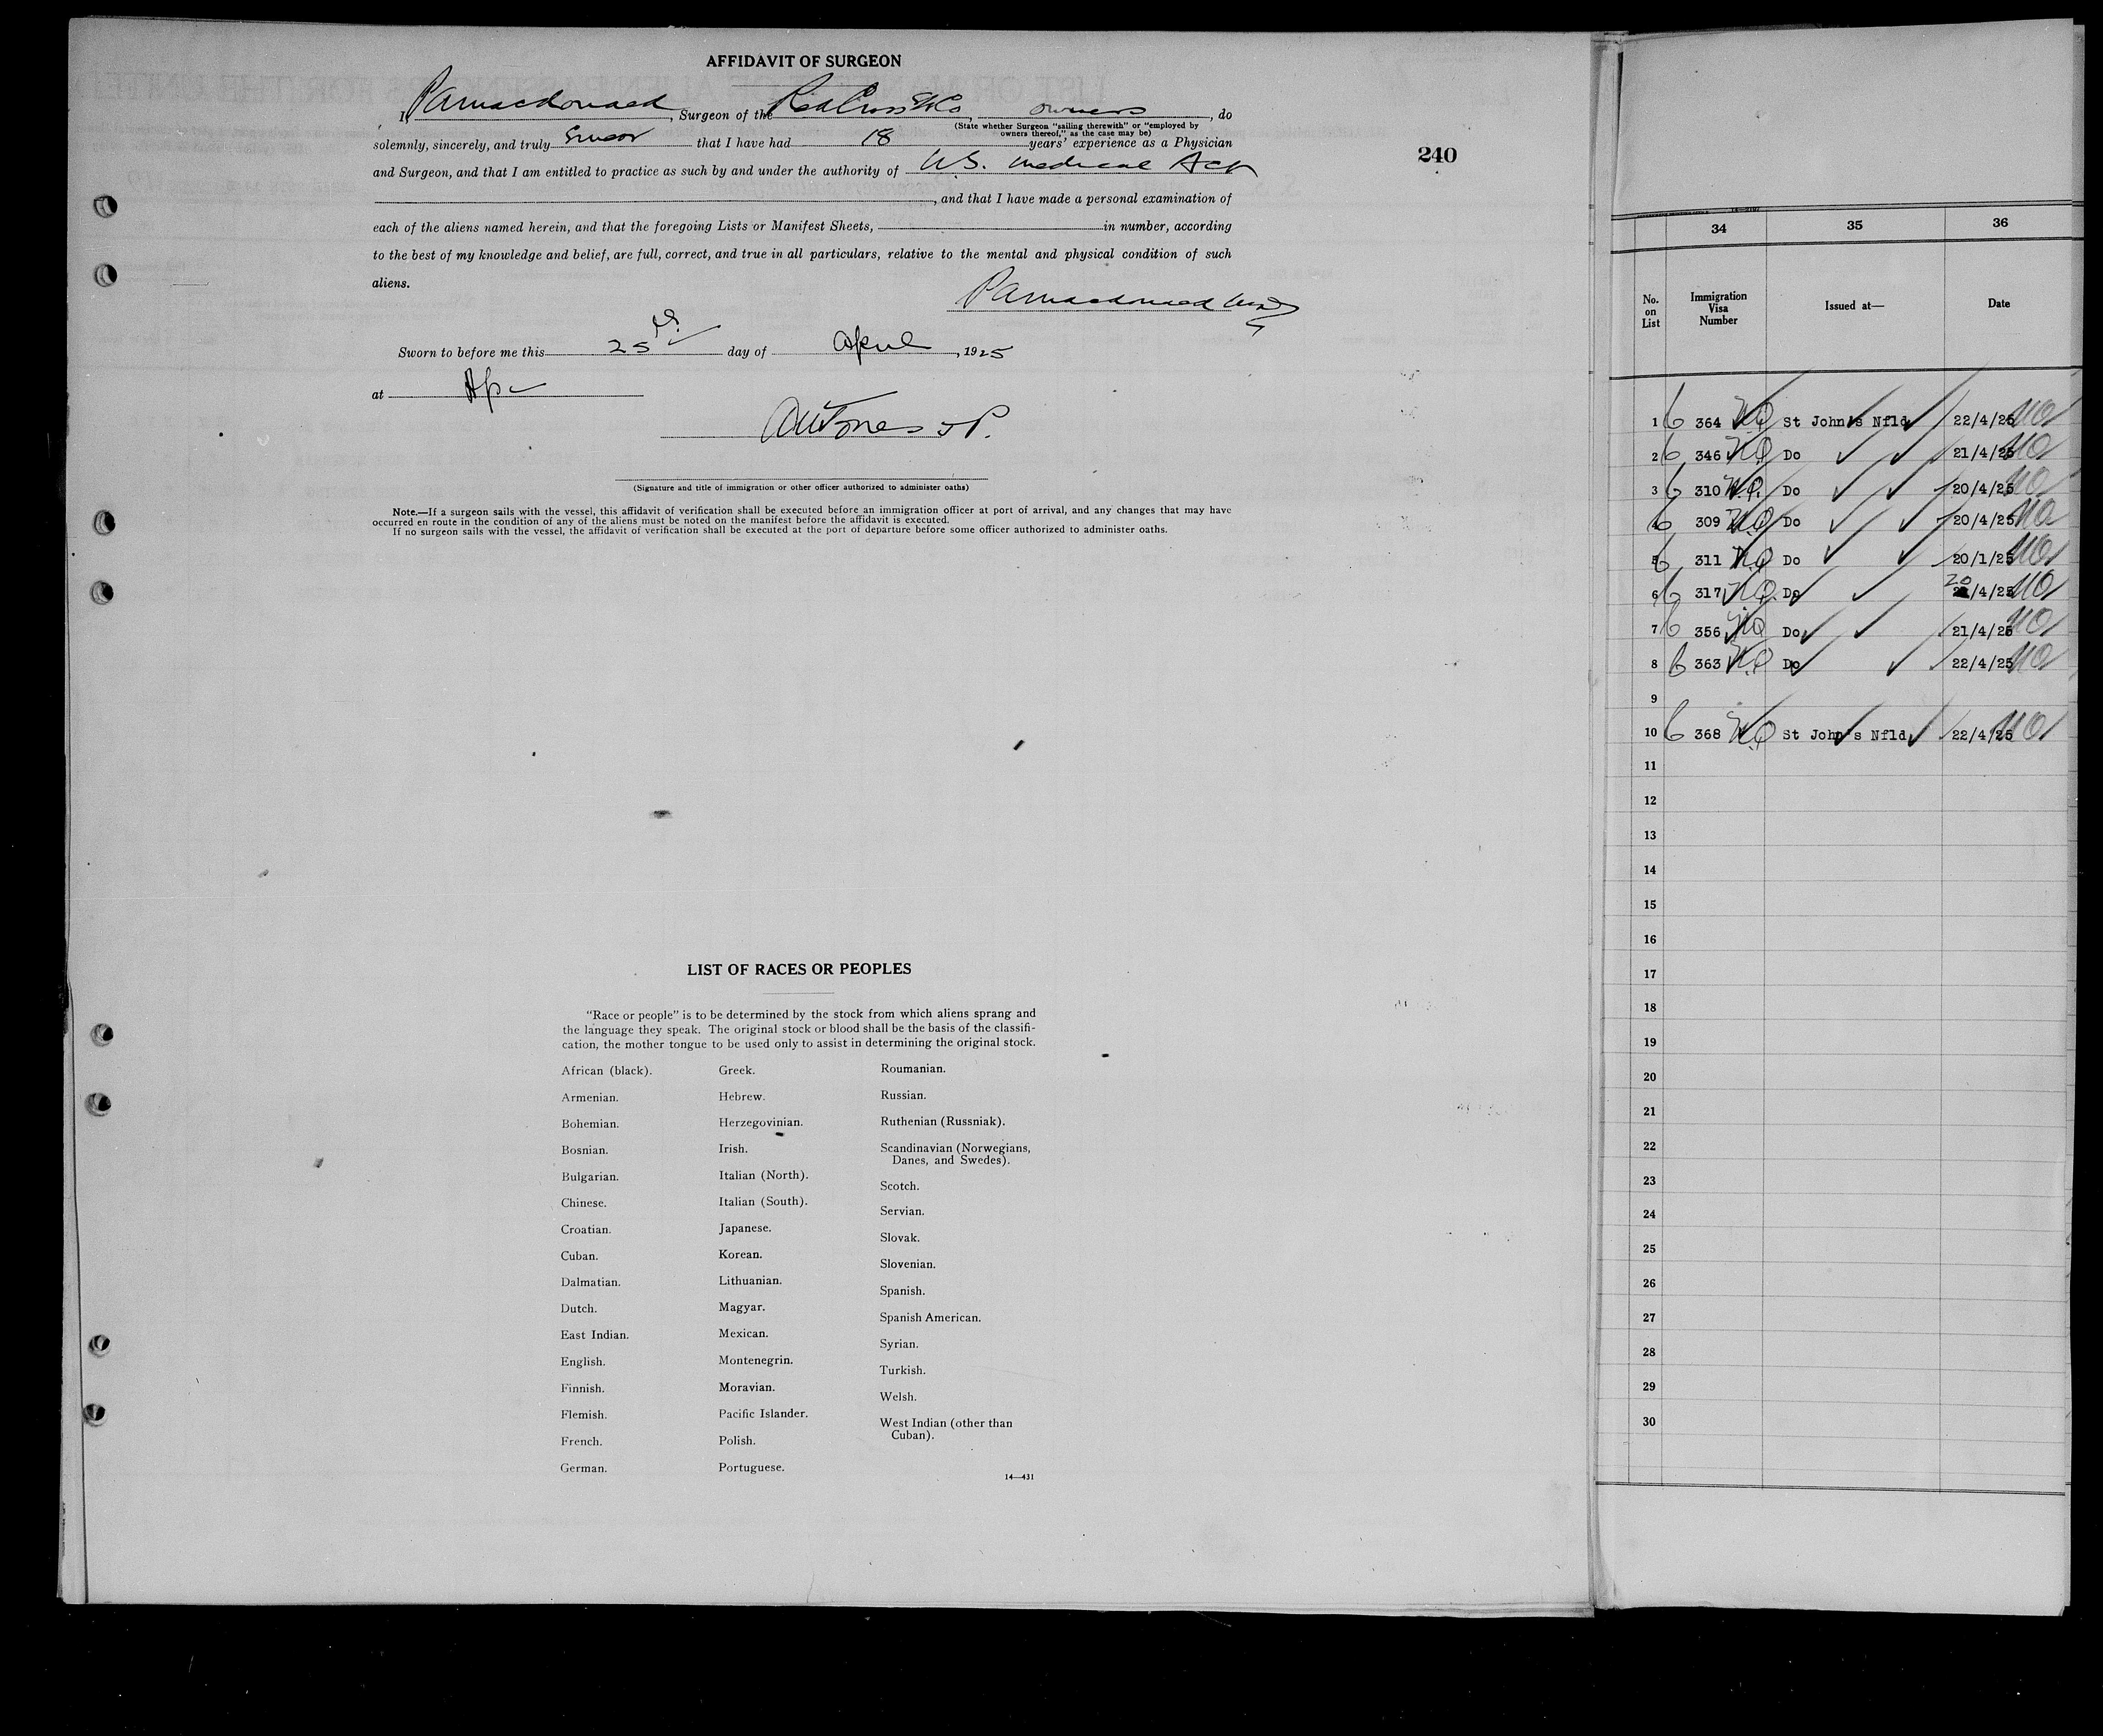 AFFIDAVIT OF SURGEON
I, PAMacdonald, Surgeon of the Red Cross SS Co, owners, do
(State whether Surgeon "sailing therewith" or "employed by
owners thereof," as the case may be)
solemnly, sincerely, and truly swear that I have had 18 years' experience as a Physician
240
and Surgeon, and that I am entitled to practice as such by and under the authority of N.S. Medical Act
, and that I have made a personal examination of
each of the aliens named herein, and that the foregoing Lists or Manifest Sheets, in number, according
to the best of my knowledge and belief, are full, correct, and true in all particulars, relative to the mental and physical condition of such
aliens.
PAMacdonald
Sworn to before me this 25 day of April, 1925
at Hfx
Jones J P.
(Signature and title of immigration or other officer authorized to administer oaths)
Note.—If a surgeon sails with the vessel, this affidavit of verification shall be executed before an immigration officer at port of arrival, and any changes that may have
occurred en route in the condition of any of the aliens must be noted on the manifest before the affidavit is executed.
If no surgeon sails with the vessel, the affidavit of verification shall be executed at the port of departure before some officer authorized to administer oaths.
LIST OF RACES OR PEOPLES
"Race or people" is to be determined by the stock from which aliens sprang and
the language they speak. The original stock or blood shall be the basis of the classifi-
cation, the mother tongue to be used only to assist in determining the original stock.
African (black).
Armenian.
Bohemian.
Bosnian.
Bulgarian.
Chinese.
Croatian.
Cuban.
Dalmatian.
Dutch.
East Indian.
English.
Finnish.
Flemish.
French.
German.
Greek.
Hebrew.
Herzegovinian.
Irish.
Italian (North).
Italian (South).
Japanese.
Korean.
Lithuanian.
Magyar.
Mexican.
Montenegrin.
Moravian.
Pacific Islander.
Polish.
Portuguese.
Roumanian.
Russian.
Ruthenian (Russniak).
Scandinavian (Norwegians,
Danes, and Swedes).
Scotch.
Servian.
Slovak.
Slovenian.
Spanish.
Spanish American.
Syrian.
Turkish.
Welsh.
West Indian (other than
Cuban).
14—431
34 35 36
No. on List Immigration Visa Number Issued at— Date
1 6 364 N.Q St John's Nfld 22/4/25
2 6 346 N.Q Do 21/4/25
3 6 310 N.Q. Do 20/4/25
4 6 309 N.Q Do 20/4/25
5 6 311 N.Q Do 20/1/25
6 6 317 N.Q. Do 20/4/25
7 6 356 N.Q Do 21/4/25
8 6 363 N.Q Do 22/4/25
9
10 6 368 N.Q St John's Nfld 22/4/25
11
12
13
14
15
16
17
18
19
20
21
22
23
24
25
26
27
28
29
30